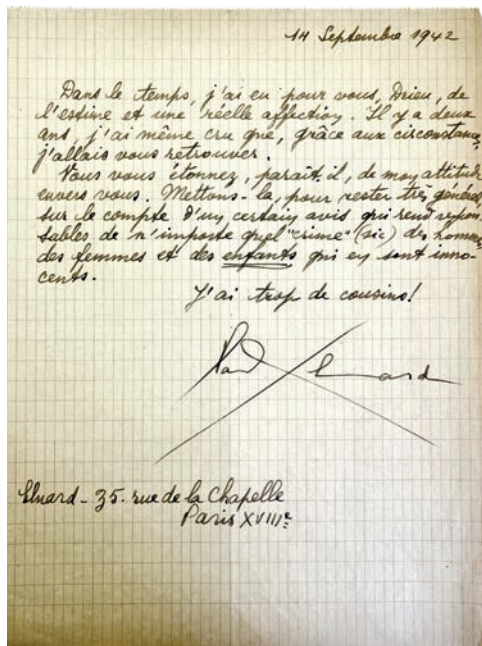 14 Septembre 1942
Dans le temps, j'ai eu pour vous, Drieu, de
l'estime et une réelle affection. Il y a deux
ans, j'ai même cru que, grâce aux circonstances,
j'allais vous retrouver.
Vous vous étonnez, paraît-il, de mon attitude
envers vous. Mettons-la, pour rester très général,
sur le compte d'un certain avis qui rend respon-
sables de n'importe quel "crime" (sic) des hommes,
des femmes et des enfants qui en sont inno-
cents.
J'ai trop de cousins!
Paul Eluard
Eluard - 35. rue de la Chapelle
Paris XVIIIe